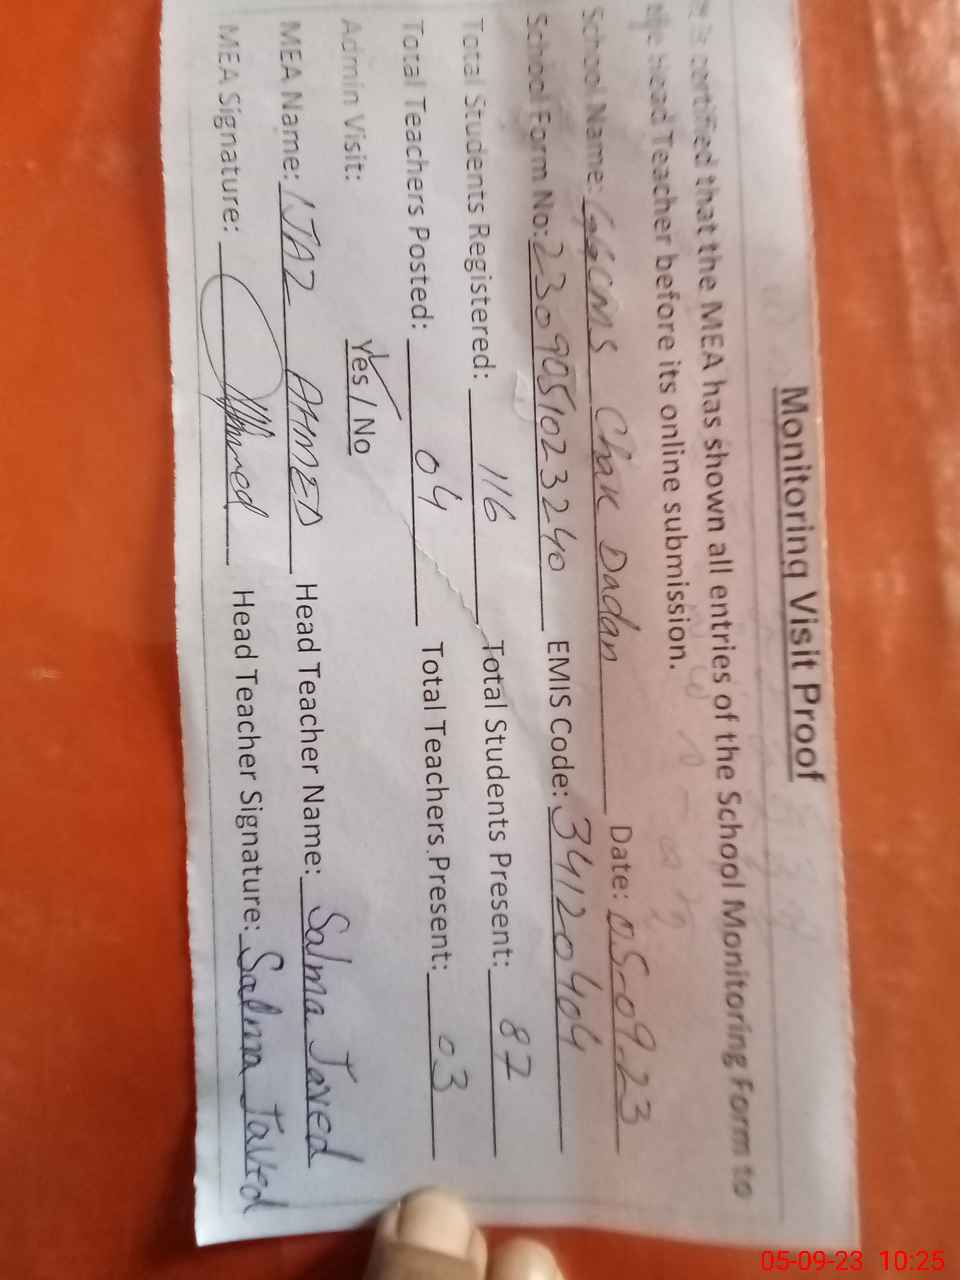 Monitoring Visit Proof
is certified that the MEA has shown all entries of the School Monitoring Form to
the Head Teacher before its online submission.
School Name: GGCMS Chak Dadan Date: 05-09-23
School Form No: 2309051023240 EMIS Code: 34120404
Total Students Registered: 116 Total Students Present: 87
Total Teachers Posted: 04 Total Teachers Present: 03
Admin Visit: Yes / No
MEA Name: IJAZ AHMED Head Teacher Name: Salma Javed
MEA Signature: Ahmed Head Teacher Signature: Salma Javed
05-09-23 10:25